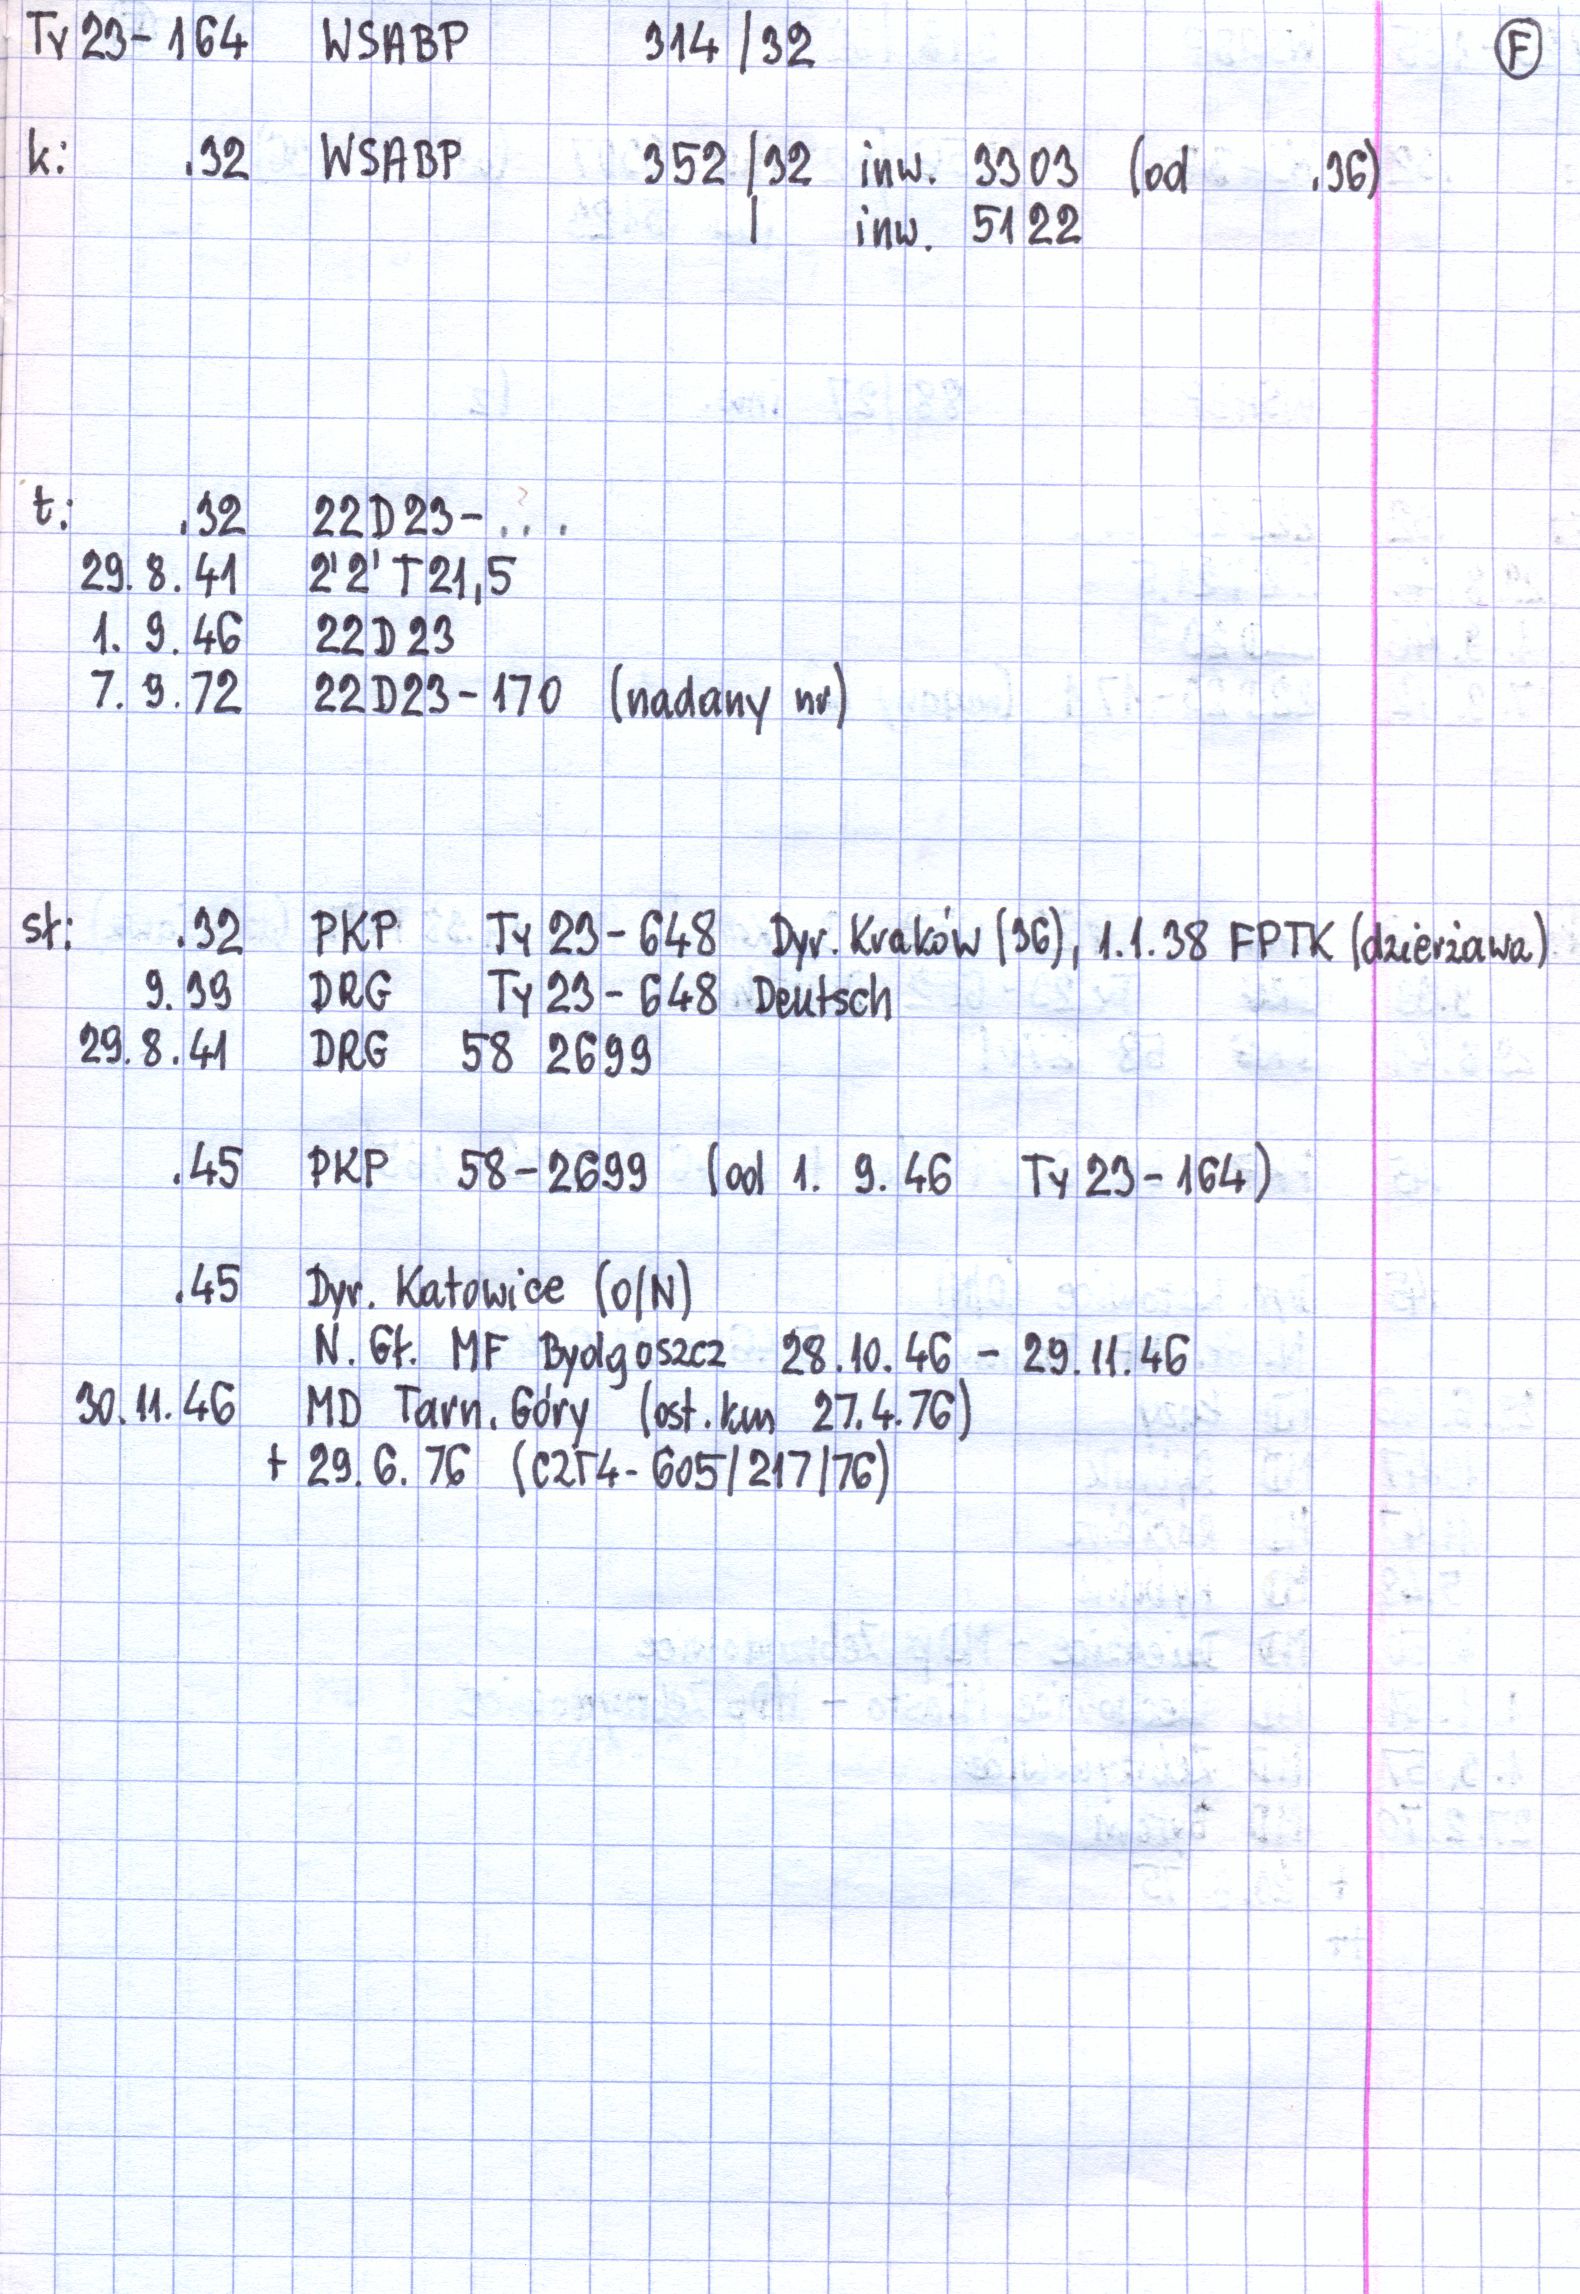 Ty 23-164 WSABP 314/32 F
k: .32 WSABP 352/32 inw. 3303 (od .36)
/ inw. 5122
t: .32 22D23-...
29.8.41 2'2'T21,5
1. 9.46 22D23
7. 9.72 22D23-170 (nadany nr)
st: .32 PKP Ty 23-648 Dyr. Kraków (36), 1.1.38 FPTK (dzierżawa)
9.39 DRG Ty 23-648 Deutsch
29.8.41 DRG 58 2699
.45 PKP 58-2699 (od 1. 9.46 Ty 23-164)
.45 Dyr. Katowice (O/N)
N. Gł. MF Bydgoszcz 28.10.46 - 29.11.46
30.11.46 MD Tarn. Góry (ost. km 27.4.76)
+ 29.6.76 (C2T4-605/217/76)